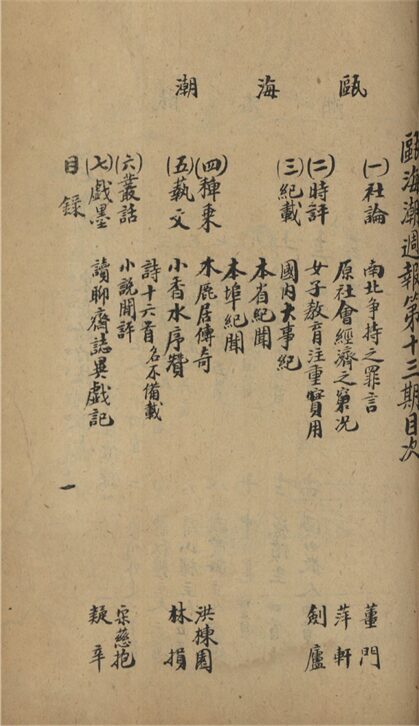 甌海潮
甌海潮週報第十三期目次
(一)社論 南北争持之罪言 薑門
原社會經濟之窮况 萍軒
(二)時評 女子教育注重實用 劍廬
(三)紀載 國內大事紀
本省紀聞
本埠紀聞
(四)稗乘 木鹿居傳奇 洪楝園
(五)藝文 小香水序贊 林損
詩十六首名不備載
(六)叢話 小說閒評 宋慈抱
(七)戲墨 讀聊齋誌異戲記 疑辛
目錄 一